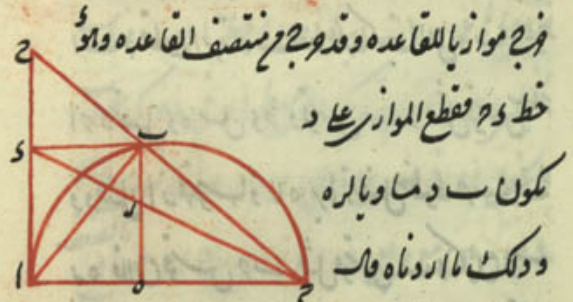 خرج موازيا للقاعده وقد خرج من منتصف القاعده وهو
خط ء ح فقطع الموازى على ر
يكون ب ر مساويا لره
وذلك ما اردناه
ح
ء
ب
ر
ا
ه
ج